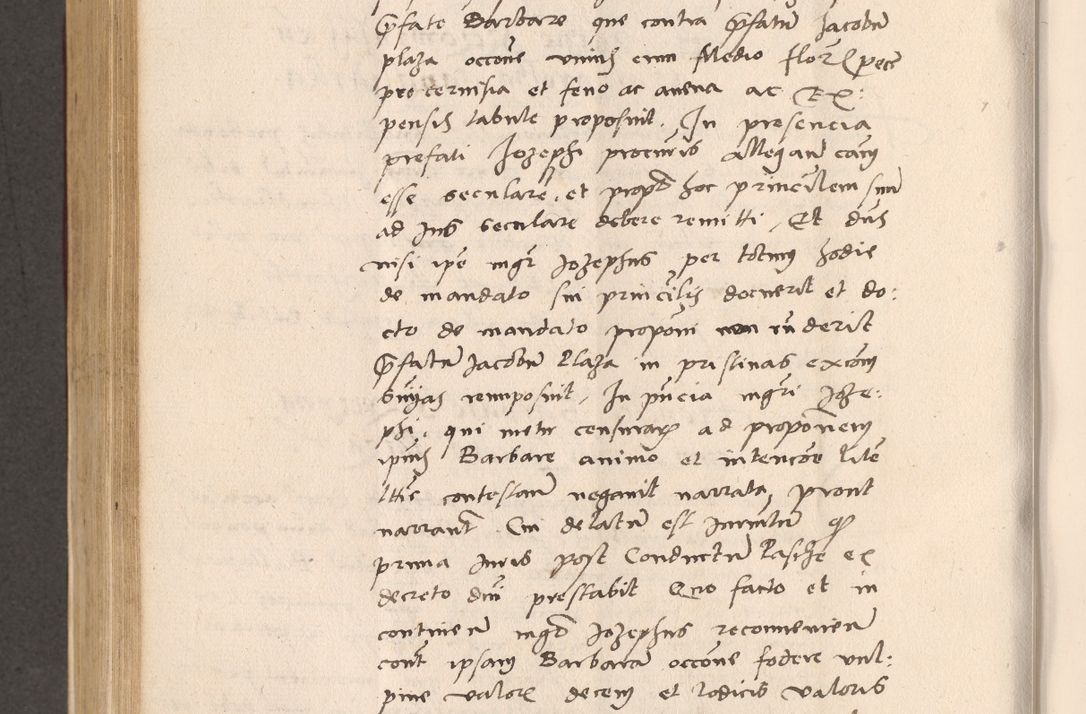 p̄fate Barbare que contra p̄fatū Jacobū
plaza occōne vnius cum Medio flor pecc
pro cernisia et feno ac auena ac Ex:
pensis tabule proposuit. In presencia
prefati Jozephi procuris allegan cam
esse secularē, et propt hoc principlem suū
ad Ius seculare debere remitti, Et dns
nisi ipe mgr Jozephus per totum hodie
de mandato sui princilis docuerit et do:
cto de mandato proponi non ruderit
p̄fatū Jacobū Plaza in pristinas excom
snias reimposuit, In pñcia mgri Joze:
phi, qui metu censurar ad proponem
ipius Barbare animo et intencōe lite
ltis contestan negauit narrata, prout
narrant. Cui delatū est Iurmtū q
prima Iuris post Conductū Pasche ex
decreto dni prestabit Quo facto et in
continen mgr Jozephus reconuenien
cont ipsam Barbara occōne fodere vul:
pine valor decem et lodicis valoris